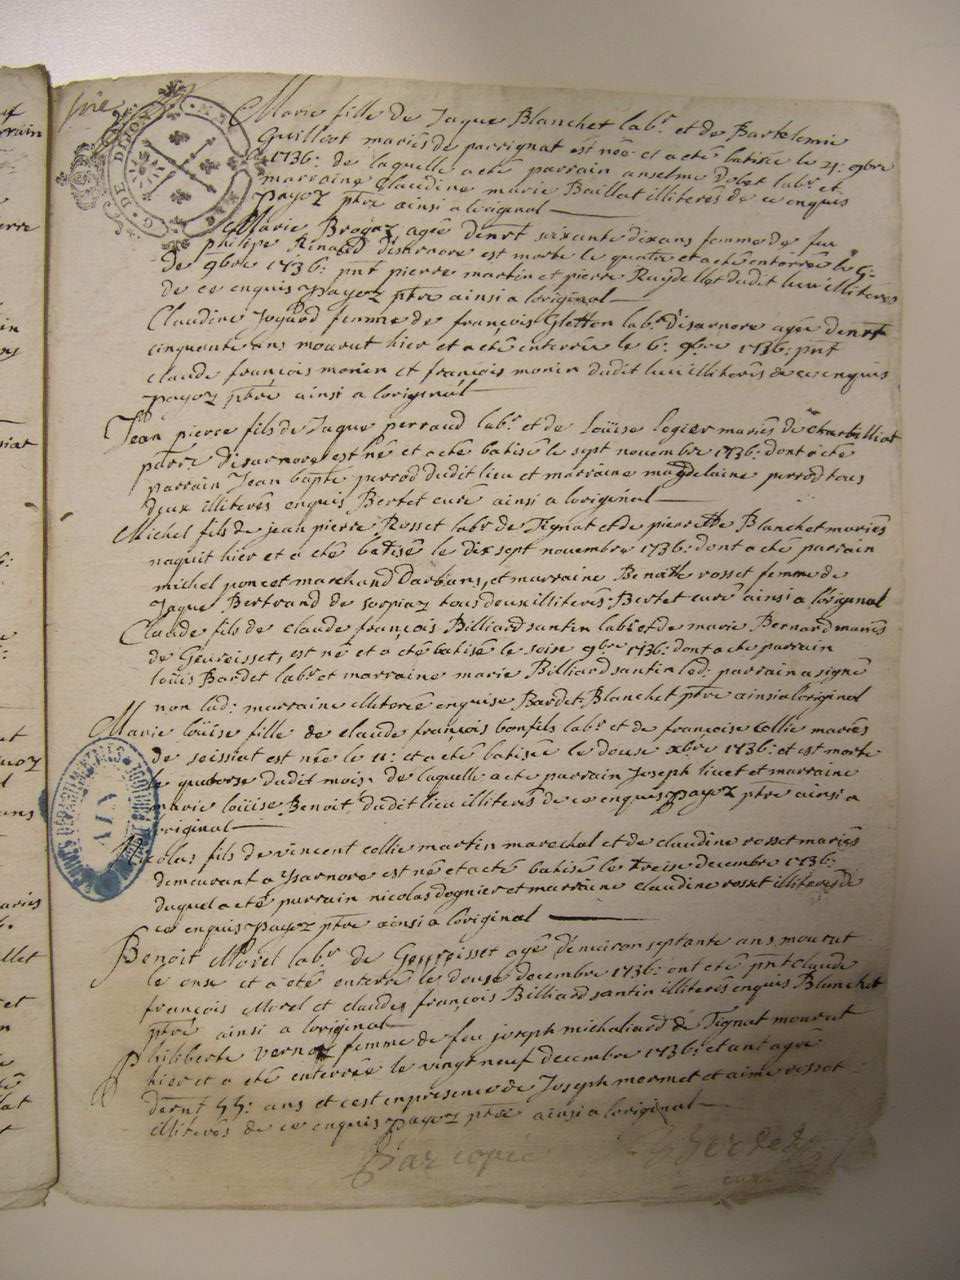 G. DE DIJON
Marie fille de Jaque Blanchet labr et de Bartelemie
Guilliot mariés de parrignat est née et a eté batisée le 21: 9bre
1736: de laquelle a eté parrain anselme lab.r et
marraine Claudine marie Baillat illiterés de ce enquis
payoz ptre ainsi a loriginal
Marie agée denrt soixante dix ans femme de feu
philipe Rinard disarnore est morte le quatre et a eté enterrée le 5.
de 9bre 1736: pnt pierre martin et pierre dudit lieu illiterés
de ce enquis payoz ptre ainsi a loriginal
Claudine Joyard femme de françois Gletton labr disarnore agée denrt
cinquante ans mourut hier et a eté enterrée le 6: 9bre 1736: pnt
claude françois monin et françois monin dudit lieu illiterés de ce enquis
payoz ptre ainsi a loriginal
Jean pierre fils de Jaque perraud labr et de Loüise Legier mariés de charbilliat
parsse disarnore est né et a eté batisé le sept novembre 1736: dont a eté
parrain Jean bapte perrod dudit lieu et marraine magdelaine perrod tous
deux illiterés enquis Bertet curé ainsi a loriginal
Michel fils de jean pierre Rosset labr de Tignat et de pierrette Blanchet mariés
naquit hier et a eté bâtisé le dix sept novembre 1736: dont a eté parrain
michel poncet marchand Darbans, et marraine Benoite rosset femme de
Jaque Bertrand de sorpiaz tous deux illiterés: Bertet curé ainsi a l'original
Claude fils de claude françois Billiard santin labr et de marie Bernard mariés
de Geureisset, est né et a eté batisé le 9bre 1736: dont a eté parrain
loüis Bardet labr et marraine marie Billiard santin led: parrain a signé
non lad: marraine illiterée enquise Bardet. Blanchet ptre ainsi a loriginal
Marie loüise fille de claude françois bonfils labr et de françoise collie mariés
de seissiat est née le 11: et a eté batisée le douse xbre 1736: et est morte
le quatorse dudit mois, de laquelle a eté parrain Joseph livet et marraine
marie loüise Benoit dudit lieu illiterés de ce enquis payoz ptre ainsi a
loriginal
Nicolas fils de vincent collie martin marechal et de claudine rosset mariés
demeurant a ysarnore est né et a eté batisé le treise decembre 1736:
duquel a eté parrain nicolas dognier et marraine claudine rosset illiterés de
ce enquis payoz ptre ainsi a loriginal
Benoit Morel labr de Geureisset agé denviron septante ans mourut
le onse et a eté enterré le douse decembre 1736: ont eté pnt claude
françois Morel et claude françois Billiard santin illiterés enquis Blanchet
ptre ainsi a loriginal
philiberte vernaz femme de feu joseph michaliard de Tignat mourut
hier et a eté enterrée le vingt neuf decembre 1736: etant agée
denrt 55: ans et cest en presence de Joseph mermet et aimé rosset
illiterés de ce enquis payoz ptre ainsi a loriginal
Par copie Bertet
curé
AIN